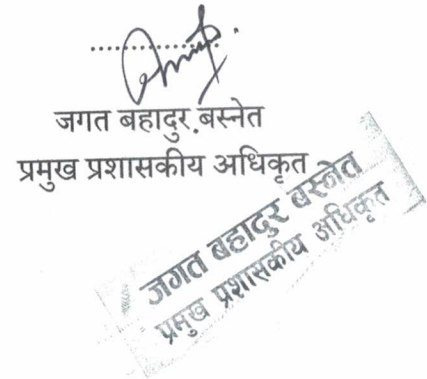 जगत बहादुर बस्नेत
प्रमुख प्रशासकीय अधिकृत
जगत बहादुर बस्नेत
प्रमुख प्रशासकीय अधिकृत